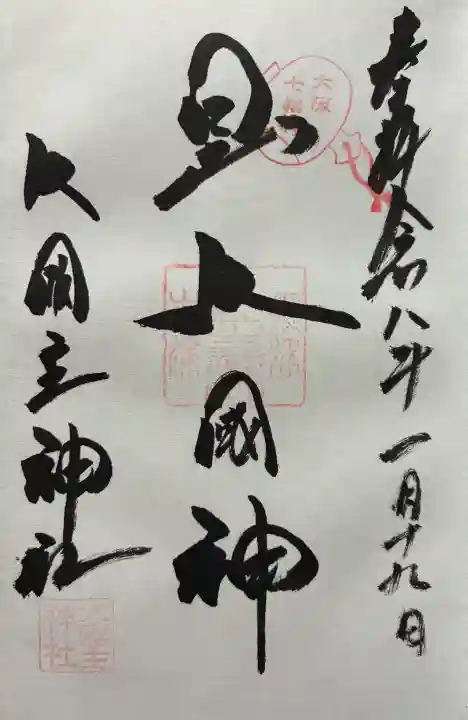 奉拝令和八年一月十九日
大阪
七福
日出大國神
大国主神社
大國主
神社